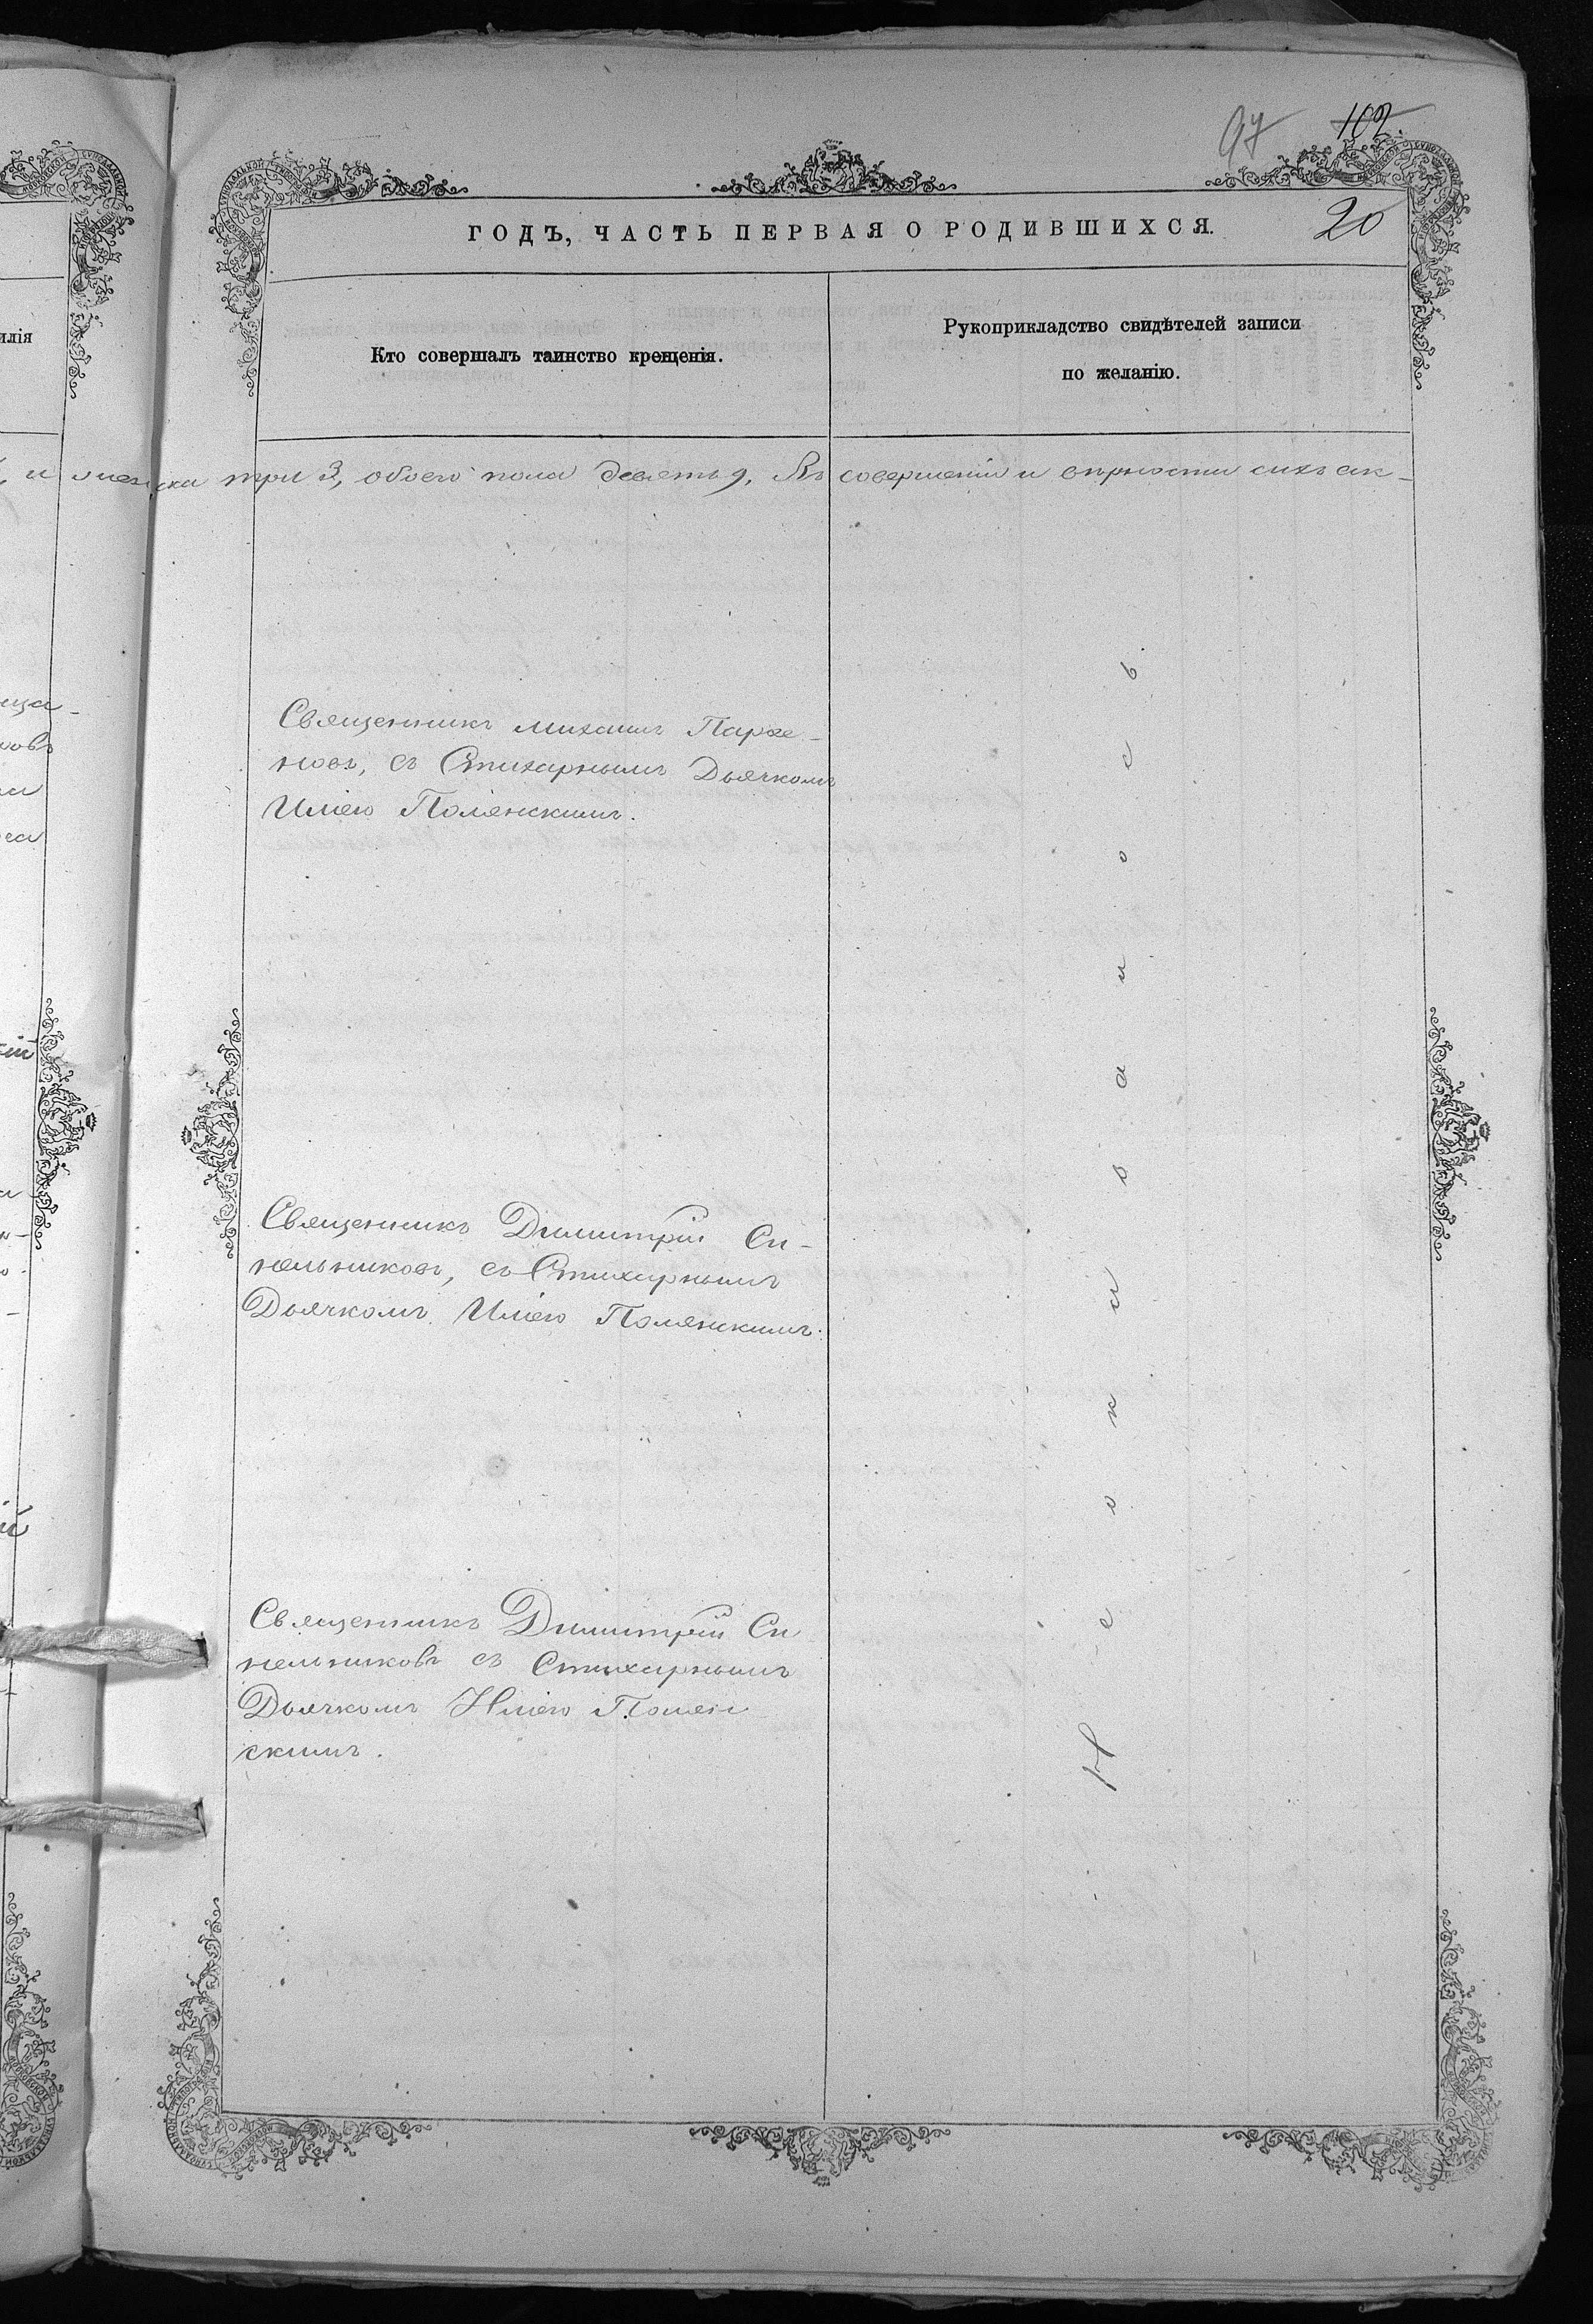 97 102
20
ГОДЪ, ЧАСТЬ ПЕРВАЯ О РОДИВШИХСЯ.
илія
Кто совершалъ таинство крещенія.
Рукоприкладство свидѣтелей записи
по желанію.
и женска три 3, обоего пола девять 9, Въ совершеніи и вѣрности сихъ ак-
Священникъ Михаилъ Парѳе-
новъ, съ Стихарнымъ Дьячкомъ
Иліею Полянскимъ.
Священникъ Димитрій Си-
нельниковъ, съ Стихарнымъ
Дьячкомъ Иліею Полянскимъ.
Священникъ Димитрій Си
нельниковъ съ Стихарнымъ
Дьячкомъ Иліею Полян
скимъ.